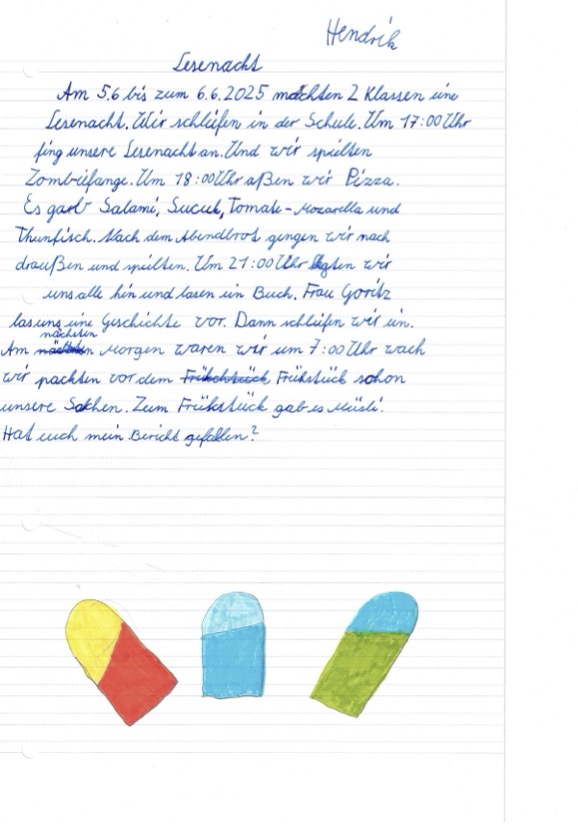 Hendrik
Lesenacht
Am 5.6 bis zum 6.6.2025 machten 2 Klassen eine
Lesenacht. Wir schliefen in der Schule. Um 17:00 Uhr
fing unsere Lesenacht an. Und wir spielten
Zombiefange. Um 18:00 Uhr aßen wir Pizza.
Es garb Salami, Sucuk, Tomate-Mozarella und
Thunfisch. Nach dem Abendbrot gengen wir nach
draußen und spielten. Um 21:00 Uhr legten wir
uns alle hin und lasen ein Buch. Frau Goritz
las uns eine Geschichte vor. Dann schliefen wir ein.
Am nächsten Morgen waren wir um 7:00 Uhr wach
wir packten vor dem Frühstück schon
unsere Sachen. Zum Frühstück gab es Müsli.
Hat euch mein Bericht gefallen?